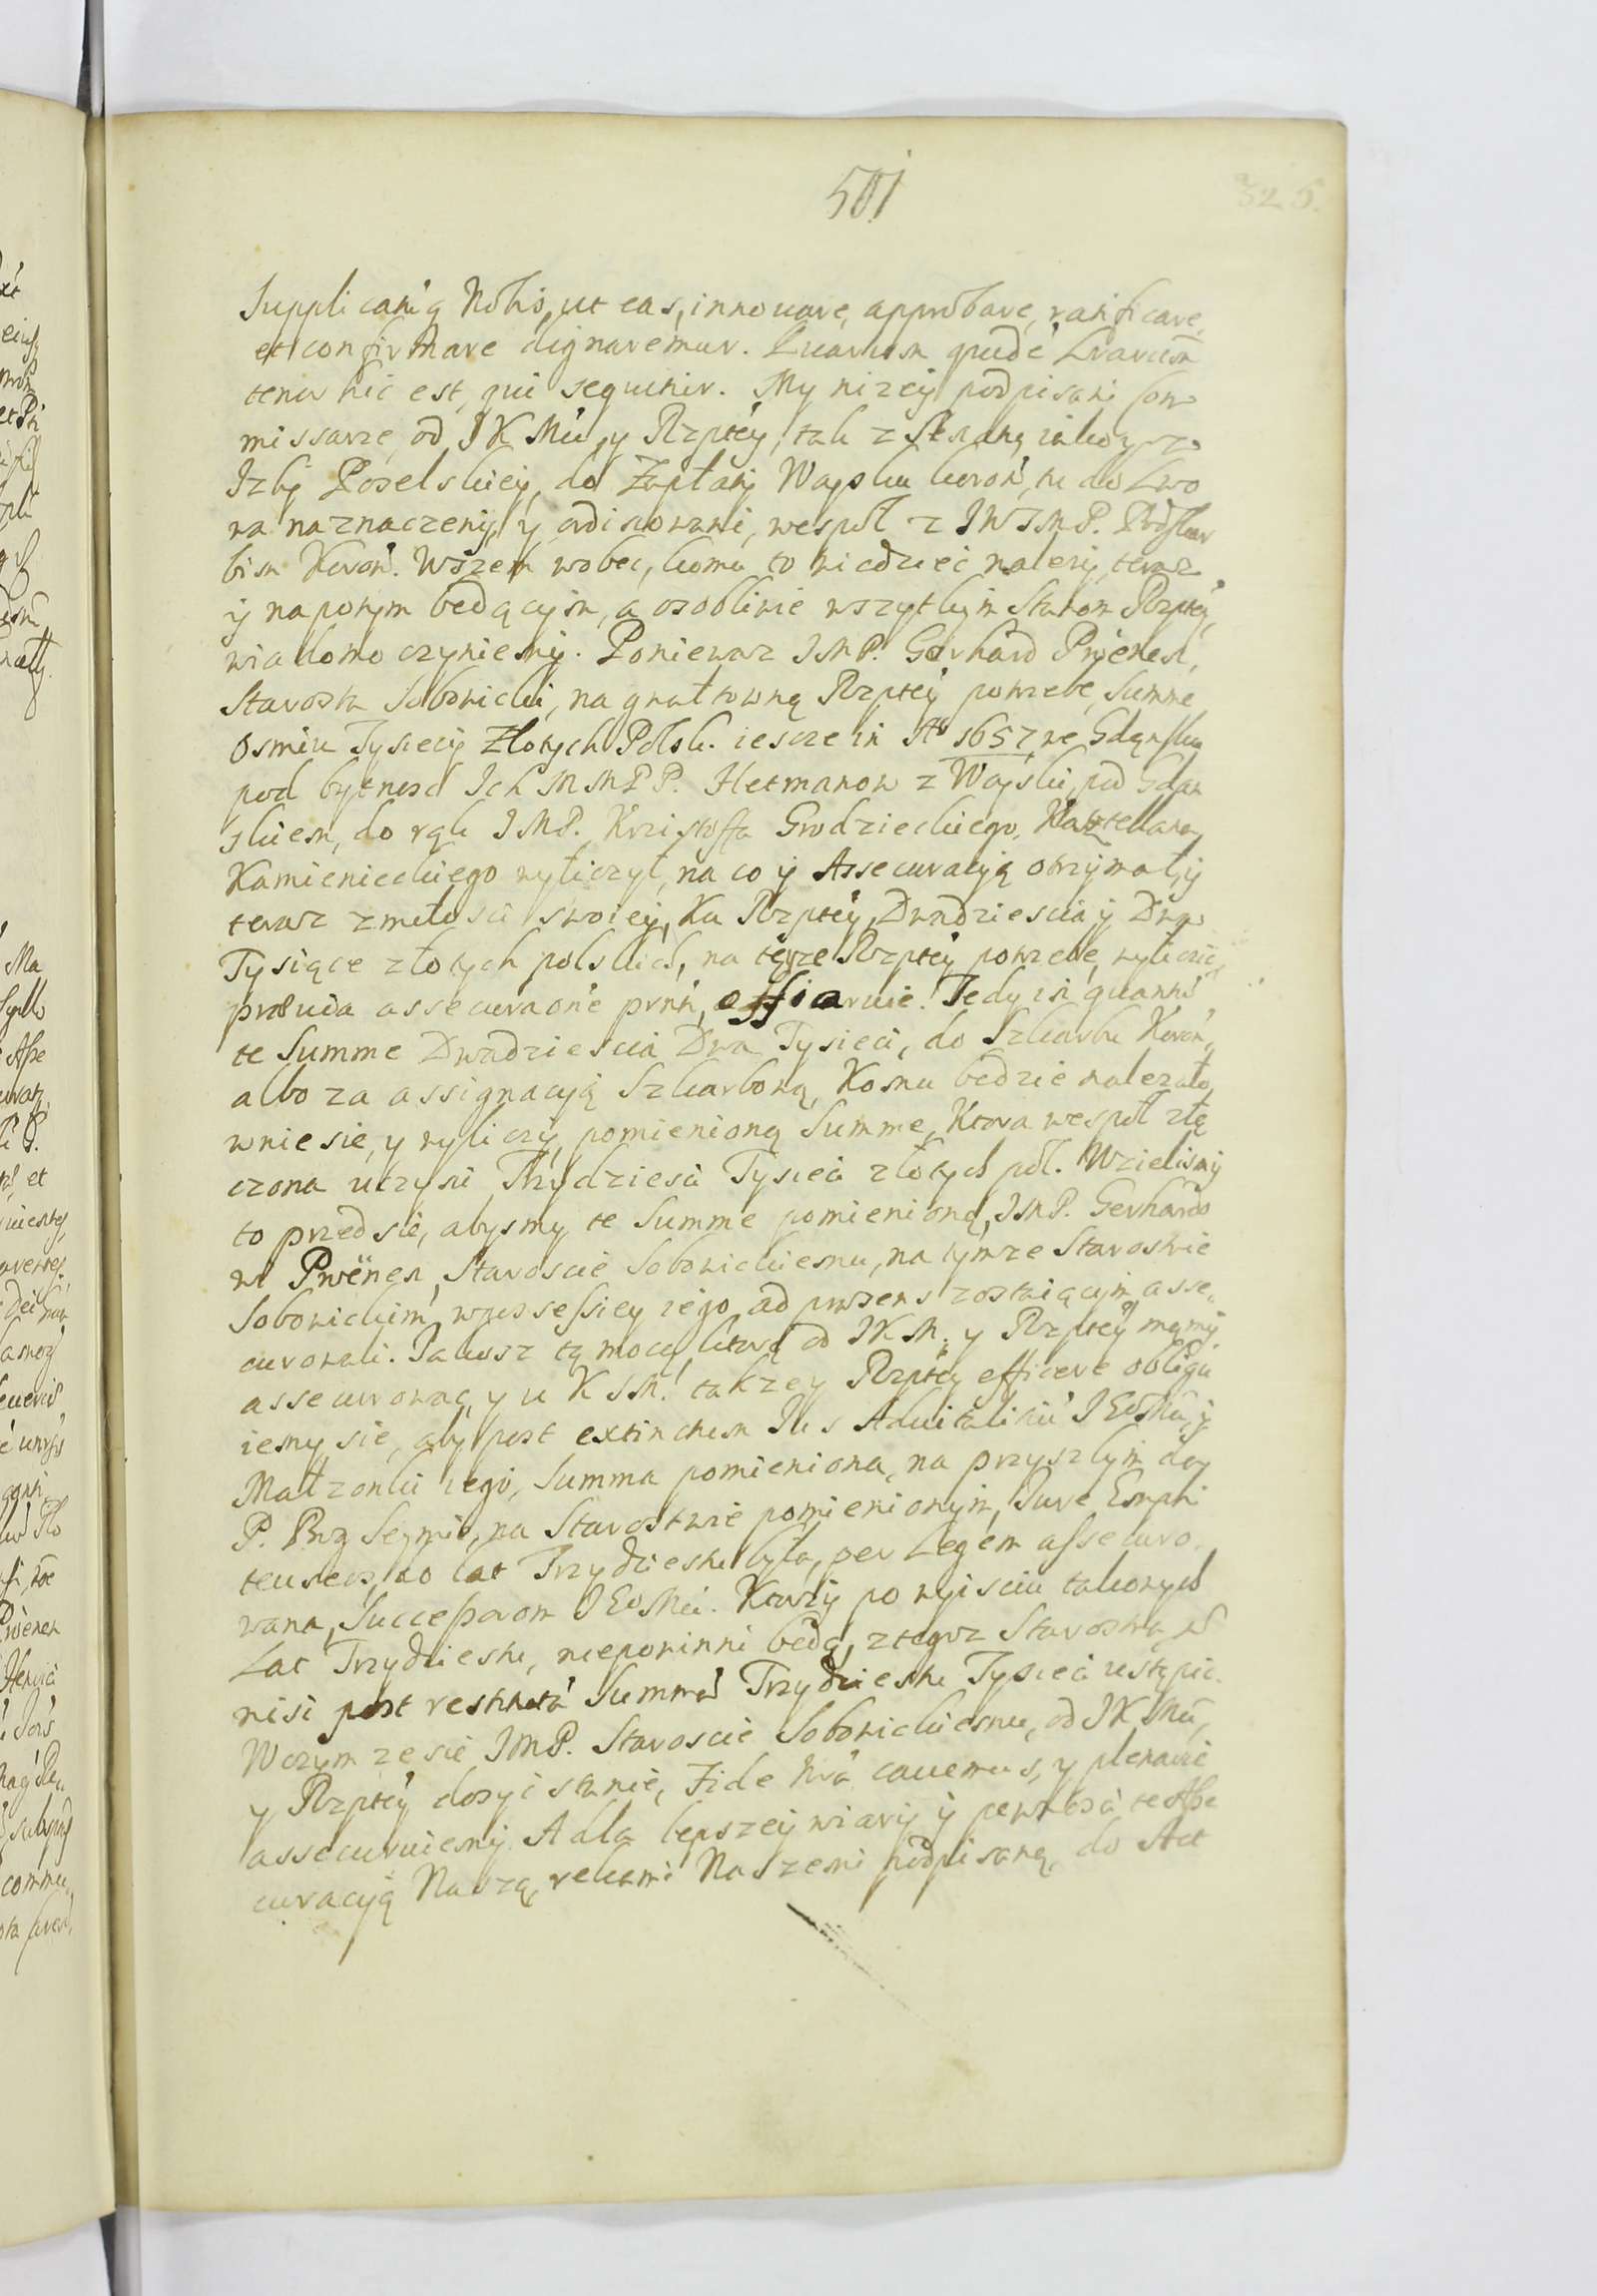 501
325.
Supplicatūq Nobis, ut eas, innouare, approbare, ratificare,
et confirmare dignaremur. Quarum quidē Lrarum
tenor hic est, qui sequitur. My nizey podpisani Com
missarze, od JK Mći, y Rzptey, tak z Senatu iako y z
Izby Poselskiey, do Zapłaty Woyska koron, tu do Lwo
wa naznaczeni, y ordinowani, wespoł z JWJMP. Podskar
bim Koron. Wszem wobec, komu to wiedziec nalezy, teraz
y napotym będącym, a osobliwie wszytkym Stanom Rzptey,
wiadomo czyniemy. Poniewaz JMP. Gerhard Prœnen,
Starosta Sobowicki, na gwałtowną Rzptey potrzebę, Summę
Osmiu Tysięcy Złotych Polsk. iescze in Ao 1657 we Gdansku
pod bytnosc Ich MMPP. Hetmanow z Woyski, pod Gdan
skiem, do rąk JMP. Krzistoffa Grodzieckiego, Kasztellana
Kamienieckiego wyliczył, na co y Assecuracyą otrzymał, y
teraz z miłosci swoiey, Ku Rzptey, Dwadziescia y Dwa
Tysiące złotych polskich, na tęyze Rzptey potrzebę, wyliczic,
prævia assecuraone prnti, offiaruie. Tedy in quantū
te Summę Dwadziescia Dwa Tysięci, do Szkarbu Koron,
albo za assignacyą Szkarbową, Komu będzie nalezało,
wniesie, y wyliczy, pomienioną Summę, Ktora wespoł złą
czona uczyni Trzydziesci Tysięci złotych pol. Wzielismy
to przed się, abysmy te Summę pomienioną, JMP. Gerhardo
wi Prœnen, Staroscie Sobowickiemu, na tymze Starostwie
Sobowickim, w possessiey iego ad præsens zostaiącym asse,,
curowali. Jakosz tą mocą, ktorą od JKM. y Rzptey mamy,
assecurowac, y u K JM. takze y Rzptey efficere obligu
iemy się, aby post extinctum Jus Aduitalitiū JEoMći, y
Małzonki iego, Summa pomieniona, na przyszłym da
P. Bug Seymie, na Starostwie pomienionym, Jure Emphi
teuseos, do lat Trzydziestu była, per Legem assecuro,,
wana, Successorom JEoMći. Ktorzy po wyisciu takowych
Lat Trzydziestu, niepowinni będą, z tegoz Starostwa,
nisi post restitutā Summā Trzydziestu Tysięci ustąpic.
W czym ze się JMP. Staroscie Sobowickiemu, od JKMći,
y Rzptey dosyc stanie, Fide Nrā cauemus, y plenarie
assecuruiemy. A dla lepszey wiary y pewnosci, te Asse
curacyą Naszą, rękami Naszemi podpisaną, do Act